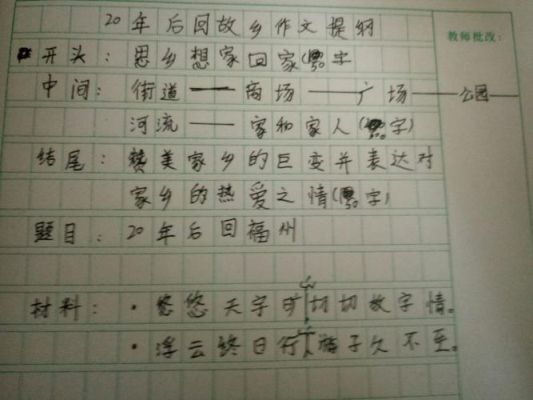 20年后回故乡作文提纲
教师批改:
开头:思乡想家回家(字
中间:街道——商场——广场——公园——
河流——家和家人(字)
结尾:赞美家乡的巨变并表达对
家乡的热爱之情(字)
题目:20年后回福州
材料:·悠悠天宇旷切切故字情。
·浮云终日行游子久不至。